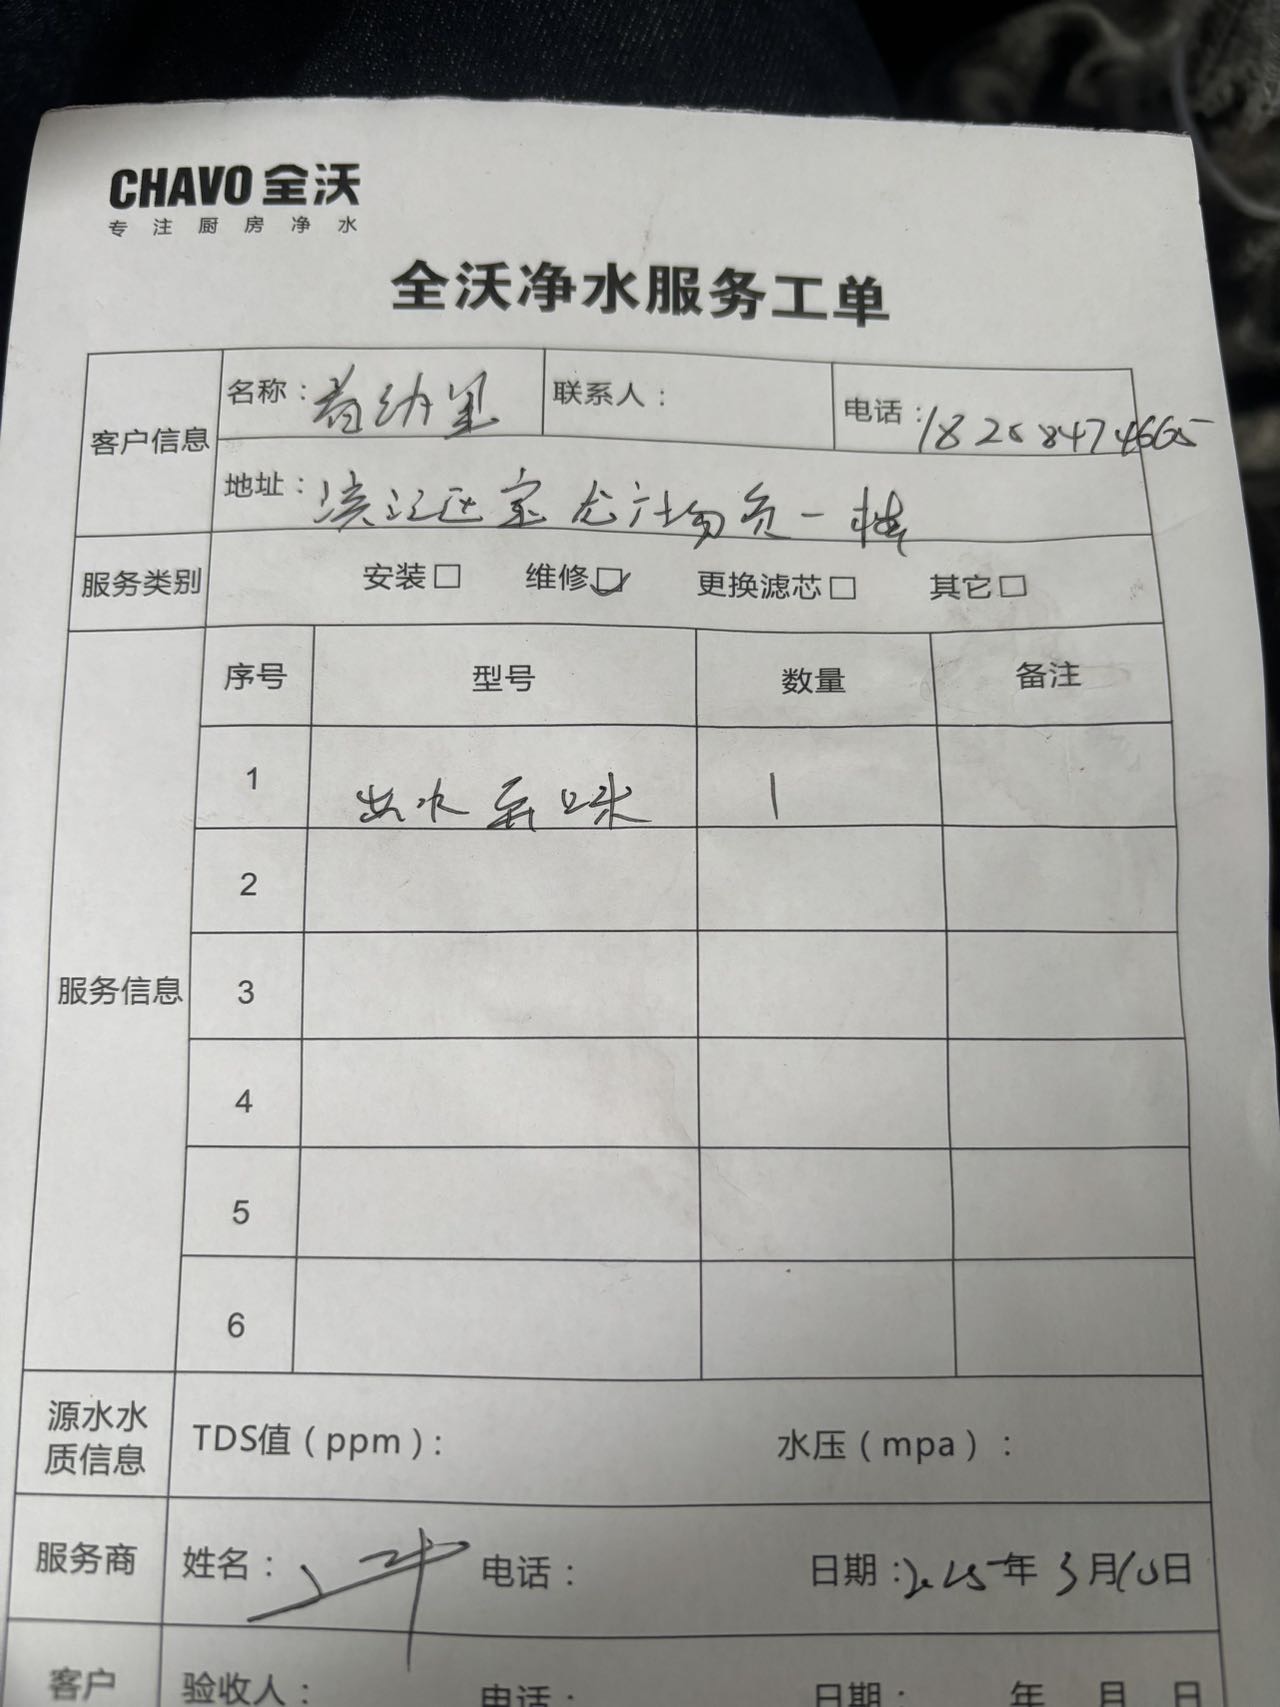 CHAVO 全沃
专注厨房净水
全沃净水服务工单
客户信息
名称：
联系人：
电话：18268474665
地址：滨江区宝龙广场负一楼
服务类别
安装□ 维修☑ 更换滤芯□ 其它□
服务信息
序号 型号 数量 备注
1 出水 1
2
3
4
5
6
源水水
质信息
TDS值（ppm）：
水压（mpa）：
服务商
姓名：
电话：
日期：2025年3月10日
客户
验收人：
电话：
日期： 年 月 日